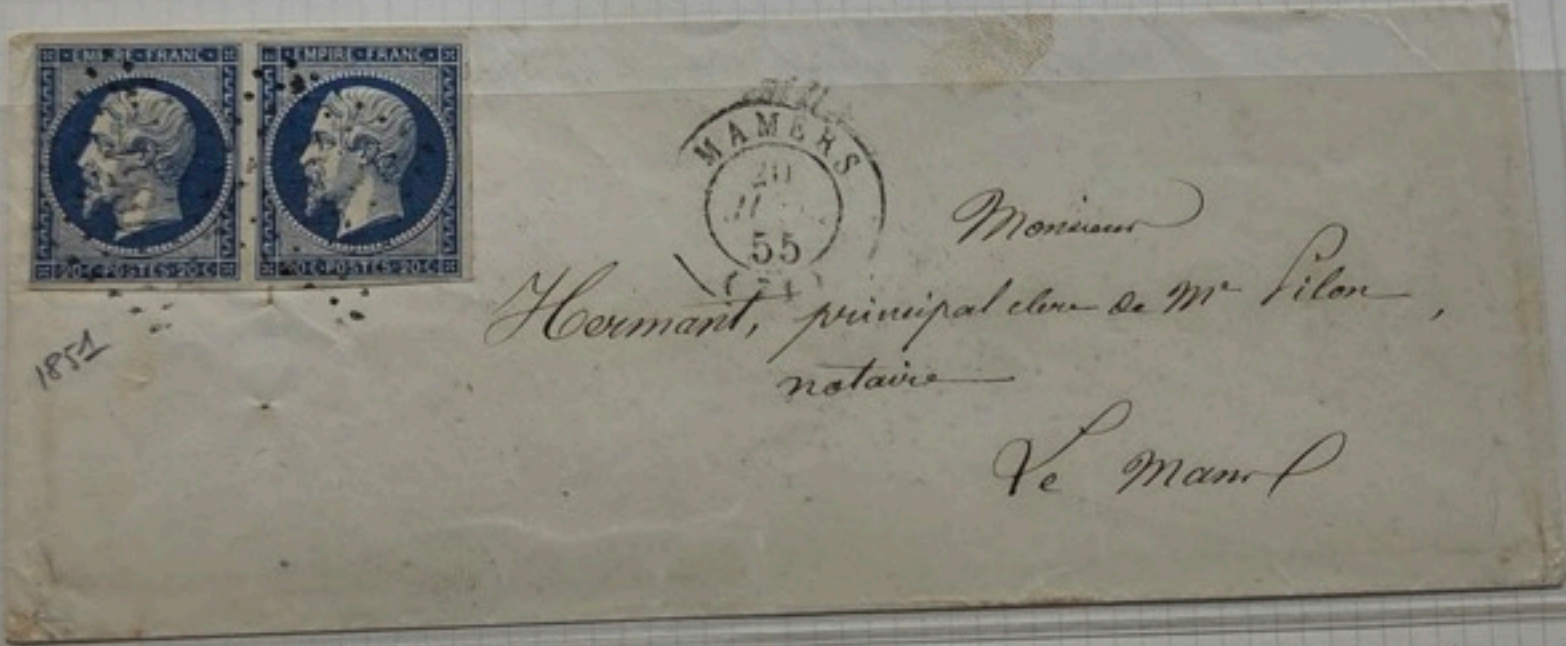 EMPIRE FRANC
EMPIRE FRANC
20 C POSTES 20 C
20 C POSTES 20 C
MAMERS
20
55
1851
Monsieur
Hermant, principal clerc de Mr Pilon,
notaire
Le Mans